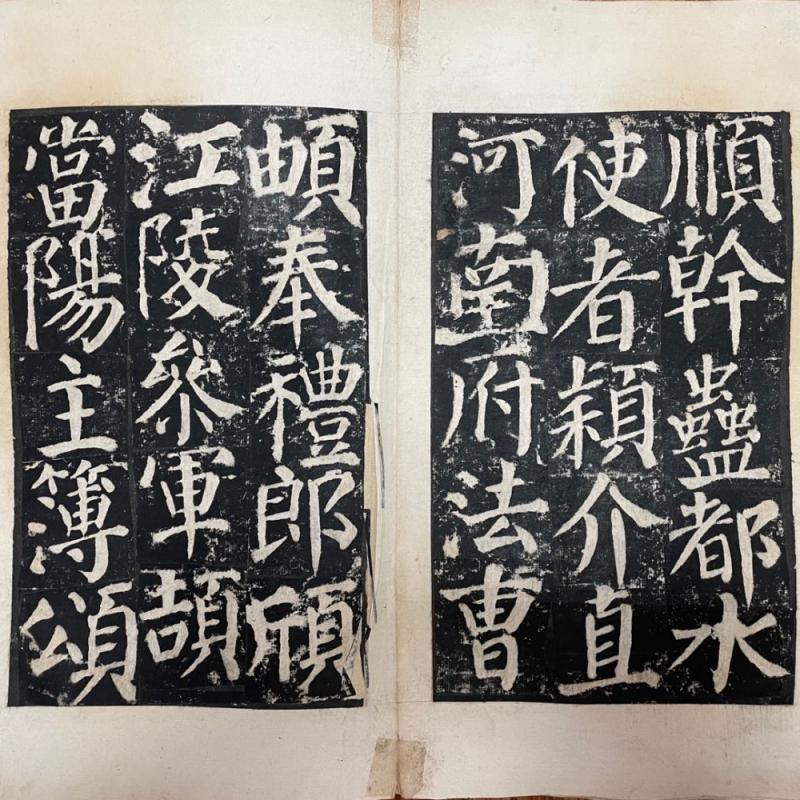 順幹蠱都水
使者穎介直
河南府法曹
頔奉禮郎頎
江陵參軍頡
當陽主簿頌